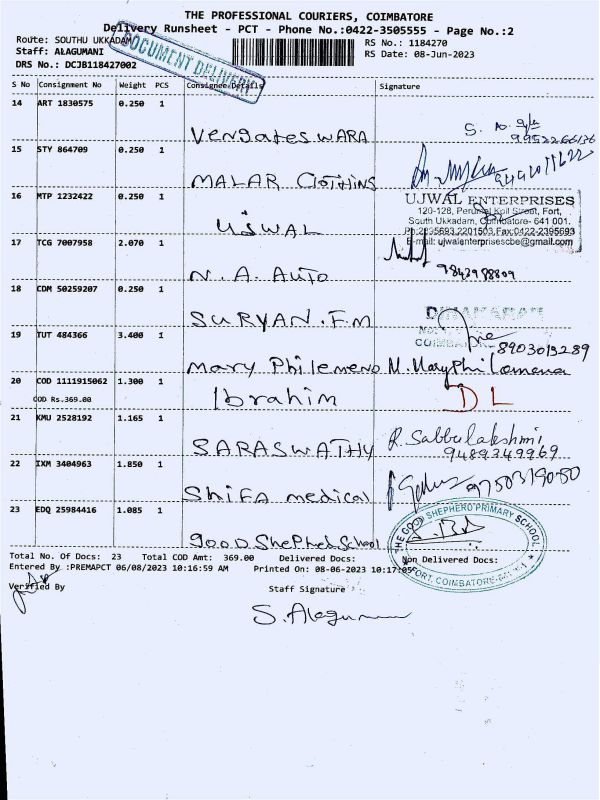 THE PROFESSIONAL COURIERS, COIMBATORE
Delivery Runsheet - PCT - Phone No.:0422-3505555 - Page No.:2
Route: SOUTHU UKKADAM
RS No.: 1184270
Staff: ALAGUMANI
RS Date: 08-Jun-2023
DRS No.: DCJB118427002
DOCUMENT DELIVERY
S No Consignment No Weight PCS Consignee Details Signature
14 ART 1830575 0.250 1
VengatesWARA
15 STY 864709 0.250 1
MALAR Clothing
16 MTP 1232422 0.250 1
UJWAL
UJWAL ENTERPRISES
120-128, Perumal Koil Street, Fort,
South Ukkadam, Coimbatore- 641 001.
Ph:2395693,2201503,Fax:0422-2395693
E-mail: ujwalenterprisescbe@gmail.com
17 TCG 7007958 2.070 1
N. A. Auto
18 CDM 50259207 0.250 1
SURYAN. F.M
DINAKARAN
19 TUT 484366 3.400 1
8903013289
Mary Philemeno M. Mary Philomena
20 COD 1111915062 1.300 1
Ibrahim
DL
COD Rs.369.00
21 KMU 2528192 1.165 1
SARASWATHY
R. Subbulakshmi
9489349969
22 IXM 3404963 1.850 1
Shifa medical
9750319080
23 EDQ 25984416 1.085 1
gooD ShePhed School
THE GOOD SHEPHERD PRIMARY SCHOOL
FORT, COIMBATORE
Total No. Of Docs: 23 Total COD Amt: 369.00 Delivered Docs: Non Delivered Docs:
Entered By :PREMAPCT 06/08/2023 10:16:59 AM Printed On: 08-06-2023 10:17:05
Verified By
Staff Signature
S. Alagumani